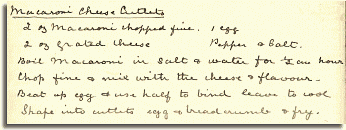 Macaroni Cheese Cutlets
2 oz Macaroni chopped fine. 1 egg
2 oz Grated Cheese Pepper & Salt.
Boil Macaroni in Salt & water for ½ an hour
Chop fine & mix with the cheese & flavour.
Beat up egg & use half to bind leave to cool
Shape into cutlets egg & breadcrumb & fry.